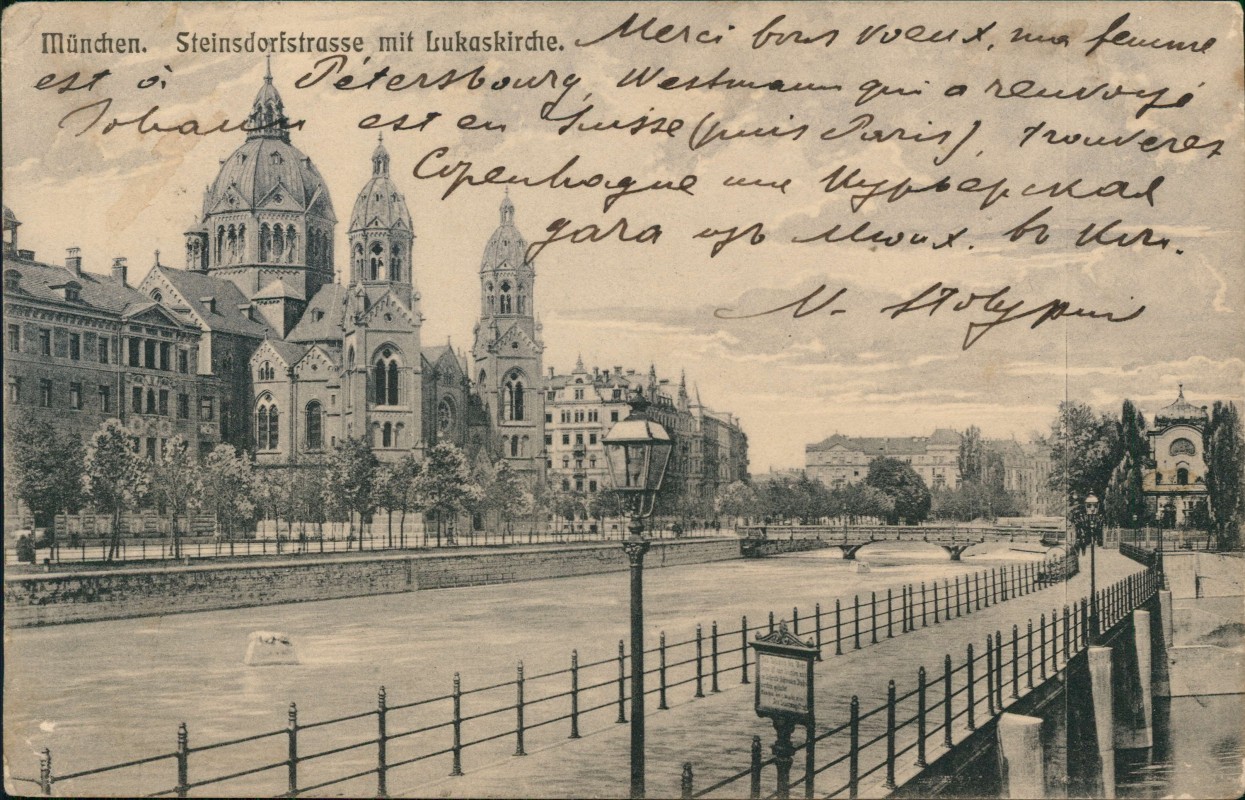 München. Steinsdorfstrasse mit Lukaskirche.
Merci bons voeux, ma femme
est à Pétersbourg, Westmann qui a renvoyé
Johann est en Suisse (puis Paris), trouverez
Copenhague une Курьерская
дача изъ Мюнх. въ Коп.
N. Stolypin